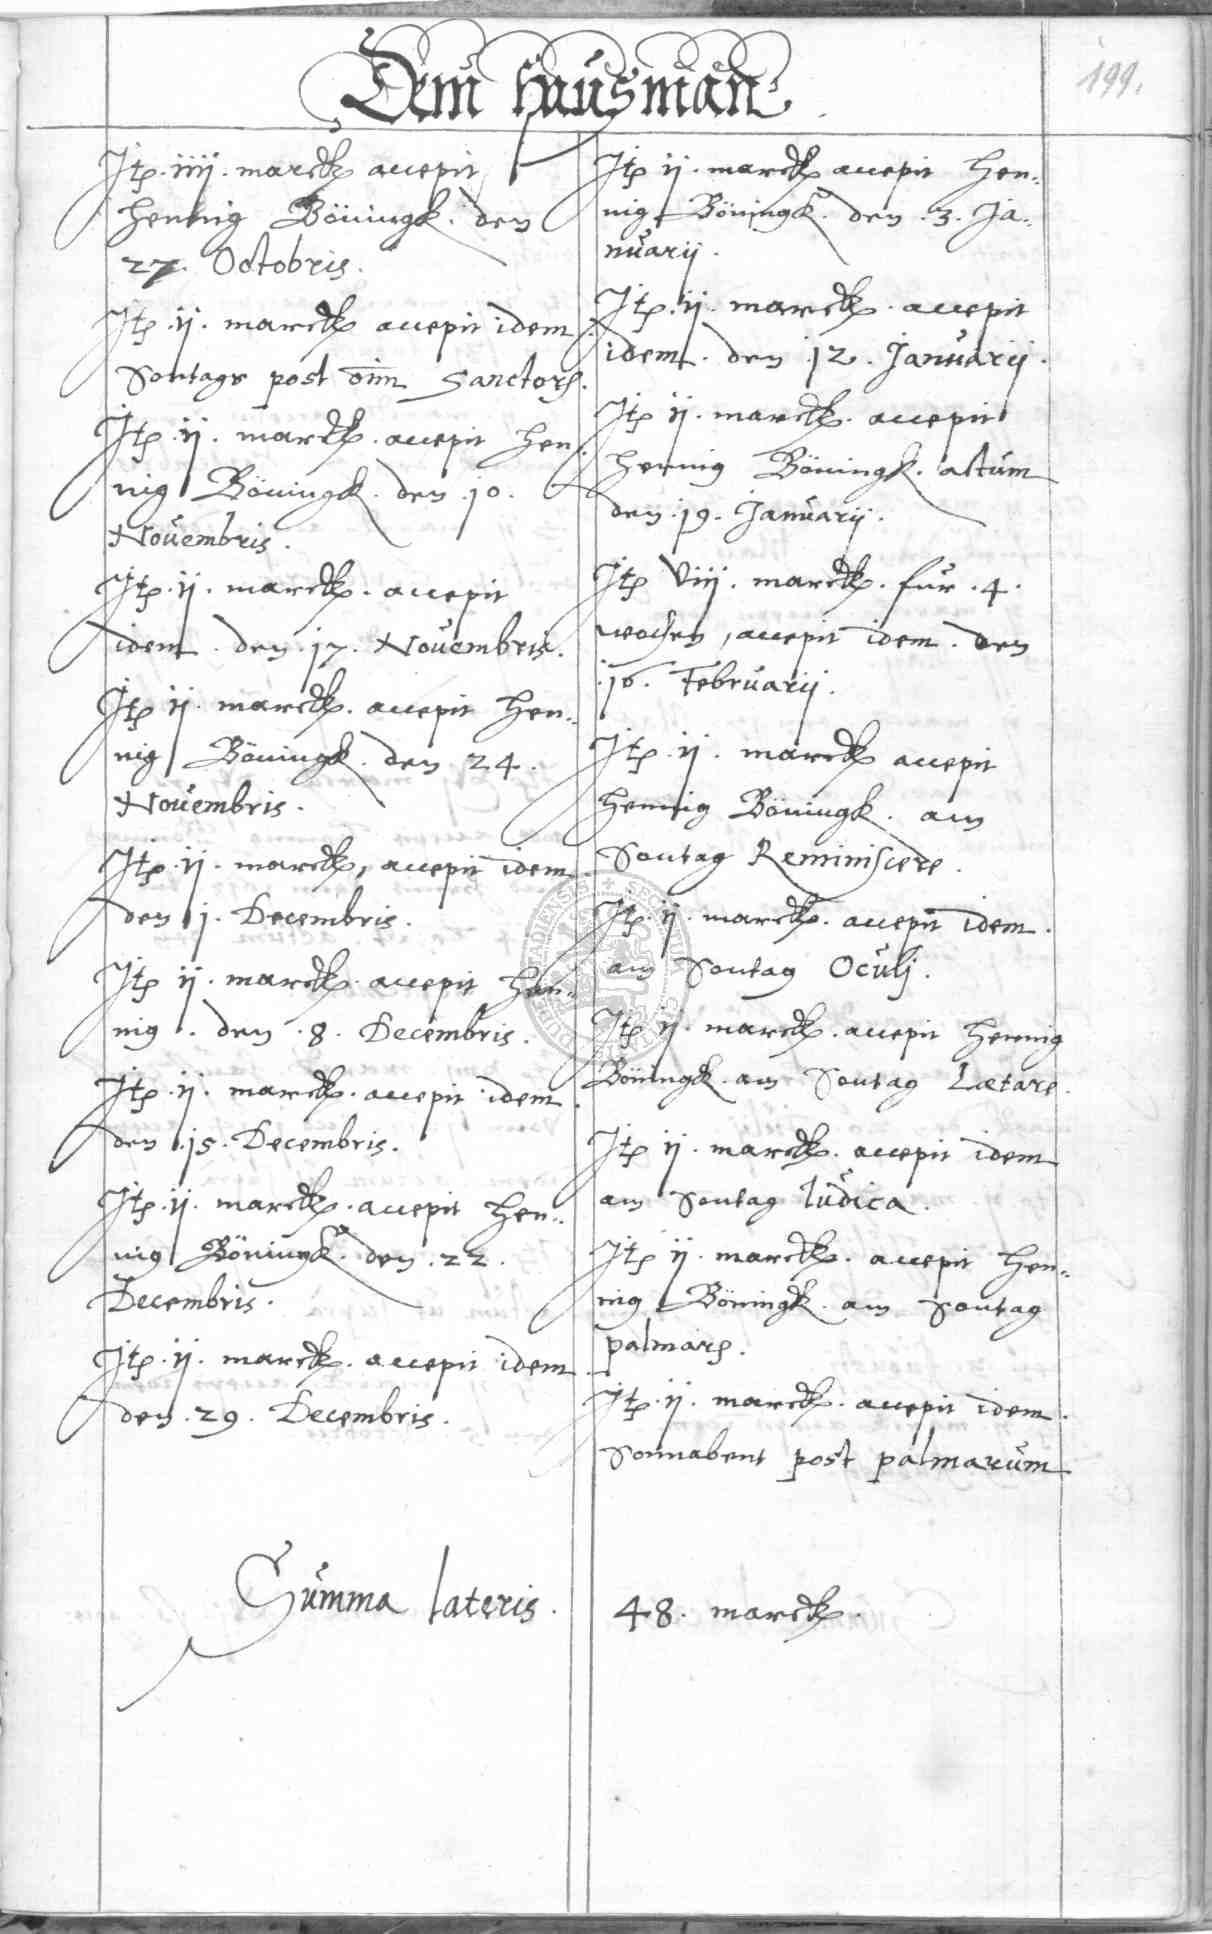 Dem hausman
199.
Itꝑ. iiij. marck accepit
Hennig Böningk. den
27. Octobris.
Itꝑ. ij. marck accepit idem
Sontags post o͞im Sanctorꝭ.
Itꝑ. ij. marck. accepit Hen-
nig Böningk. den .10.
Novembris.
Itꝑ. ij. marck. accepit
idem. den .17. Novembris.
Itꝑ ij. marck. accepit Hen-
nig Böningk. den 24.
Novembris.
Itꝑ. ij. marck, accepit idem
den 1. Decembris.
Itꝑ ij. marck. accepit Hen-
nig. den .8. Decembris.
Itꝑ. ij. marck. accepit idem
den .15. Decembris.
Itꝑ. ij. marck. accepit Hen-
nig Böningk. den .22.
Decembris.
Itꝑ. ij. marck. accepit idem
den .29. Decembris.
Itꝑ ij. marck accepit Hen-
nig Böningk. den .3. Ja-
nuarij.
Itꝑ. ij. marck. accepit
idem. den 12. Januarij.
Itꝑ ij. marck. accepit
Hennig Böningk. actum
den .19. Januarij.
Itꝑ Viij. marck. für .4.
wochen, accepit idem. den
.16. Februarij.
Itꝑ. ij. marck accepit
Hennig Böningk. am
Sontag Reminiscere.
Itꝑ. ij. marck. accepit idem.
am Sontag Oculj.
Itꝑ ij. marck. accepit Hennig
Böningk. am Sontag Lætare.
Itꝑ ij. marck. accepit idem
am Sontag Iudica.
Itꝑ ij. marck. accepit Hen-
nig Böningk. am Sontag
palmarꝭ.
Itꝑ. ij. marck. accepit idem.
Sonnabent post palmarum
Summa lateris. 48. marck.